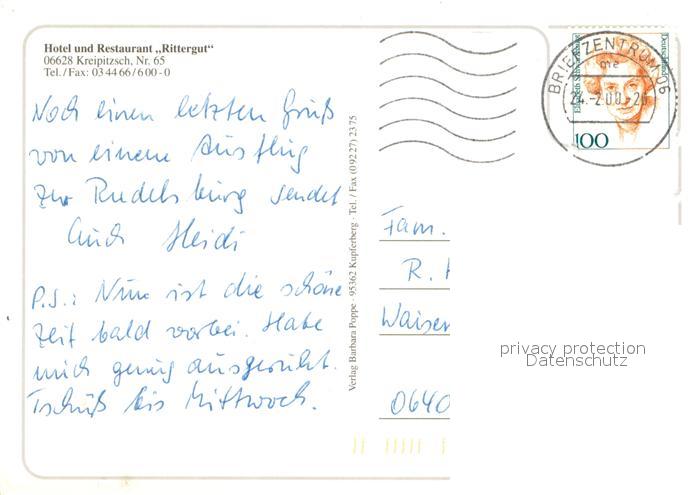 Hotel und Restaurant „Rittergut“
06628 Kreipitzsch, Nr. 65
Tel./Fax: 03 44 66/6 00-0
Noch einen letzten Gruß
von einem Ausflug
zur Rudelsburg sendet
Euch Heidi
P.S.: Nun ist die schöne
Zeit bald vorbei. Habe
mich genug ausgeruht.
Tschüß bis Mittwoch.
Verlag Barbara Poppe · 95362 Kupferberg · Tel. / Fax (0 92 27) 23 75
BRIEFZENTRUM 06
Deutschland
100
Fam.
R.
Waisen
0640
privacy protection
Datenschutz